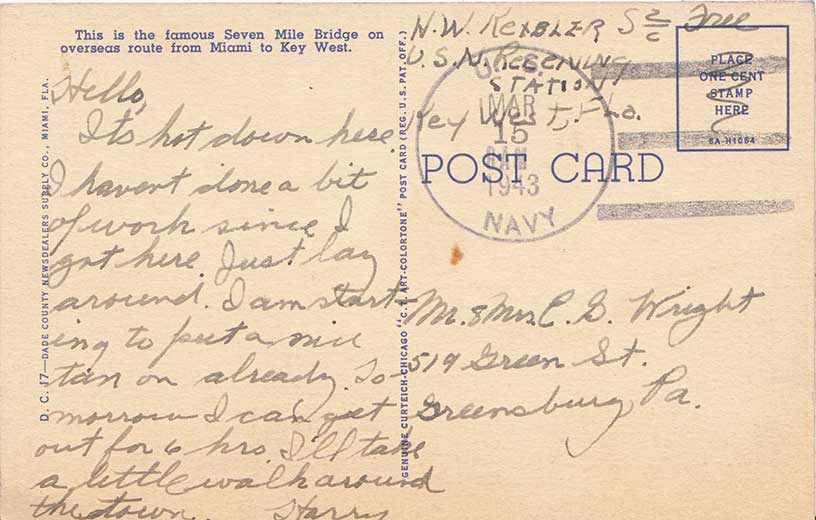 This is the famous Seven Mile Bridge on
overseas route from Miami to Key West.
Hello,
Its hot down here.
I havent done a bit
of work since I
got here. Just lay
around. I am start-
ing to put a nice
tan on already. To-
morrow I can get
out for 6 hrs. I'll take
a little walk around
the town. Harry
D. C. 17—DADE COUNTY NEWSDEALERS SUPPLY CO., MIAMI, FLA.
GENUINE CURTEICH-CHICAGO "C. T. ART-COLORTONE" POST CARD (REG. U.S. PAT. OFF.)
N. W. KEIBLER S 2/c Free
U. S. N. RECEIVING
STATION
Key West, Fla.
U.S.
MAR
15
1943
NAVY
PLACE
ONE CENT
STAMP
HERE
6A-H1064
POST CARD
Mr. & Mrs. C. G. Wright
519 Green St.
Greensburg Pa.